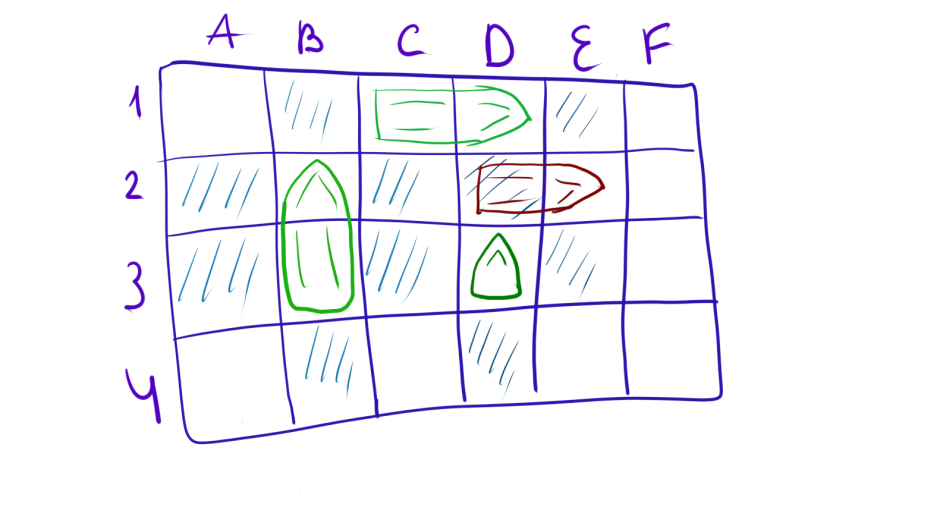 A B C D E F
1
2
3
4